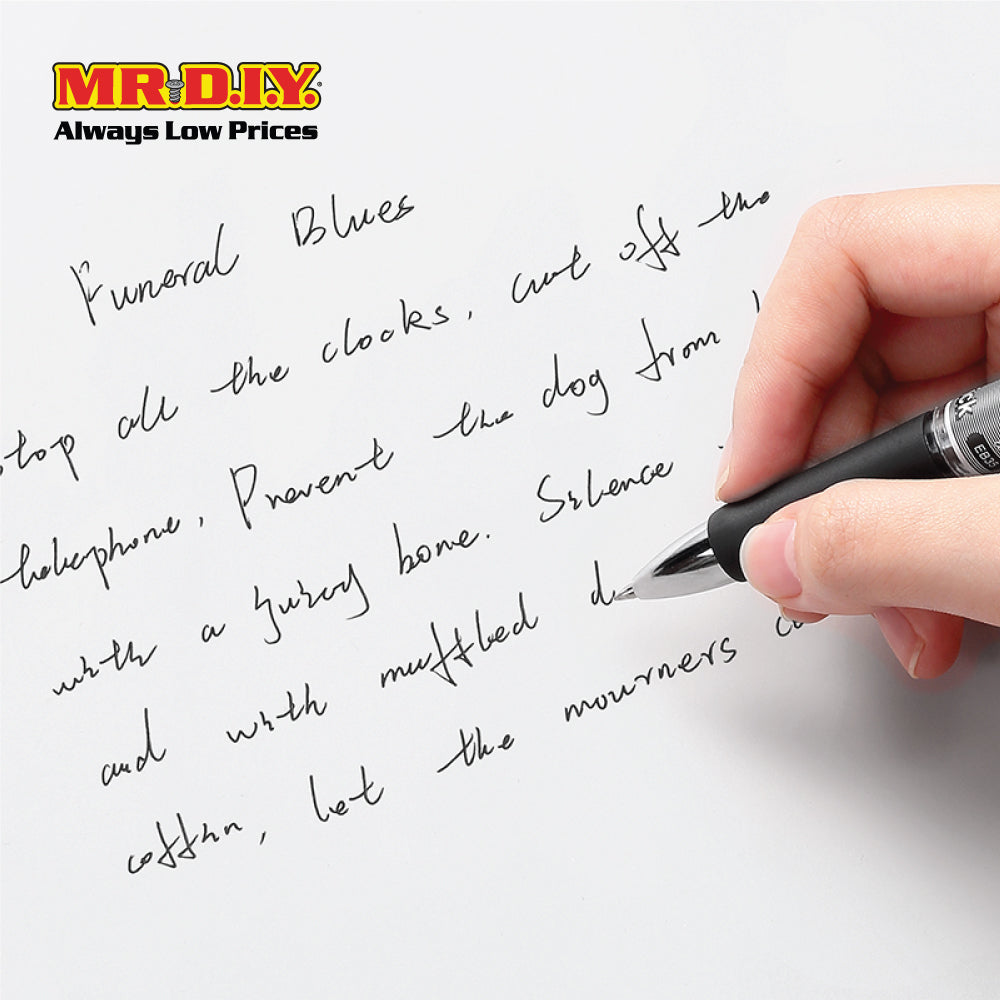 MR.D.I.Y.
Always Low Prices
Funeral Blues
stop all the clocks, cut off the
telephone, Prevent the dog from
with a juicy bone. Silence
and with muffled d
coffin, let the mourners co
ck
EB35